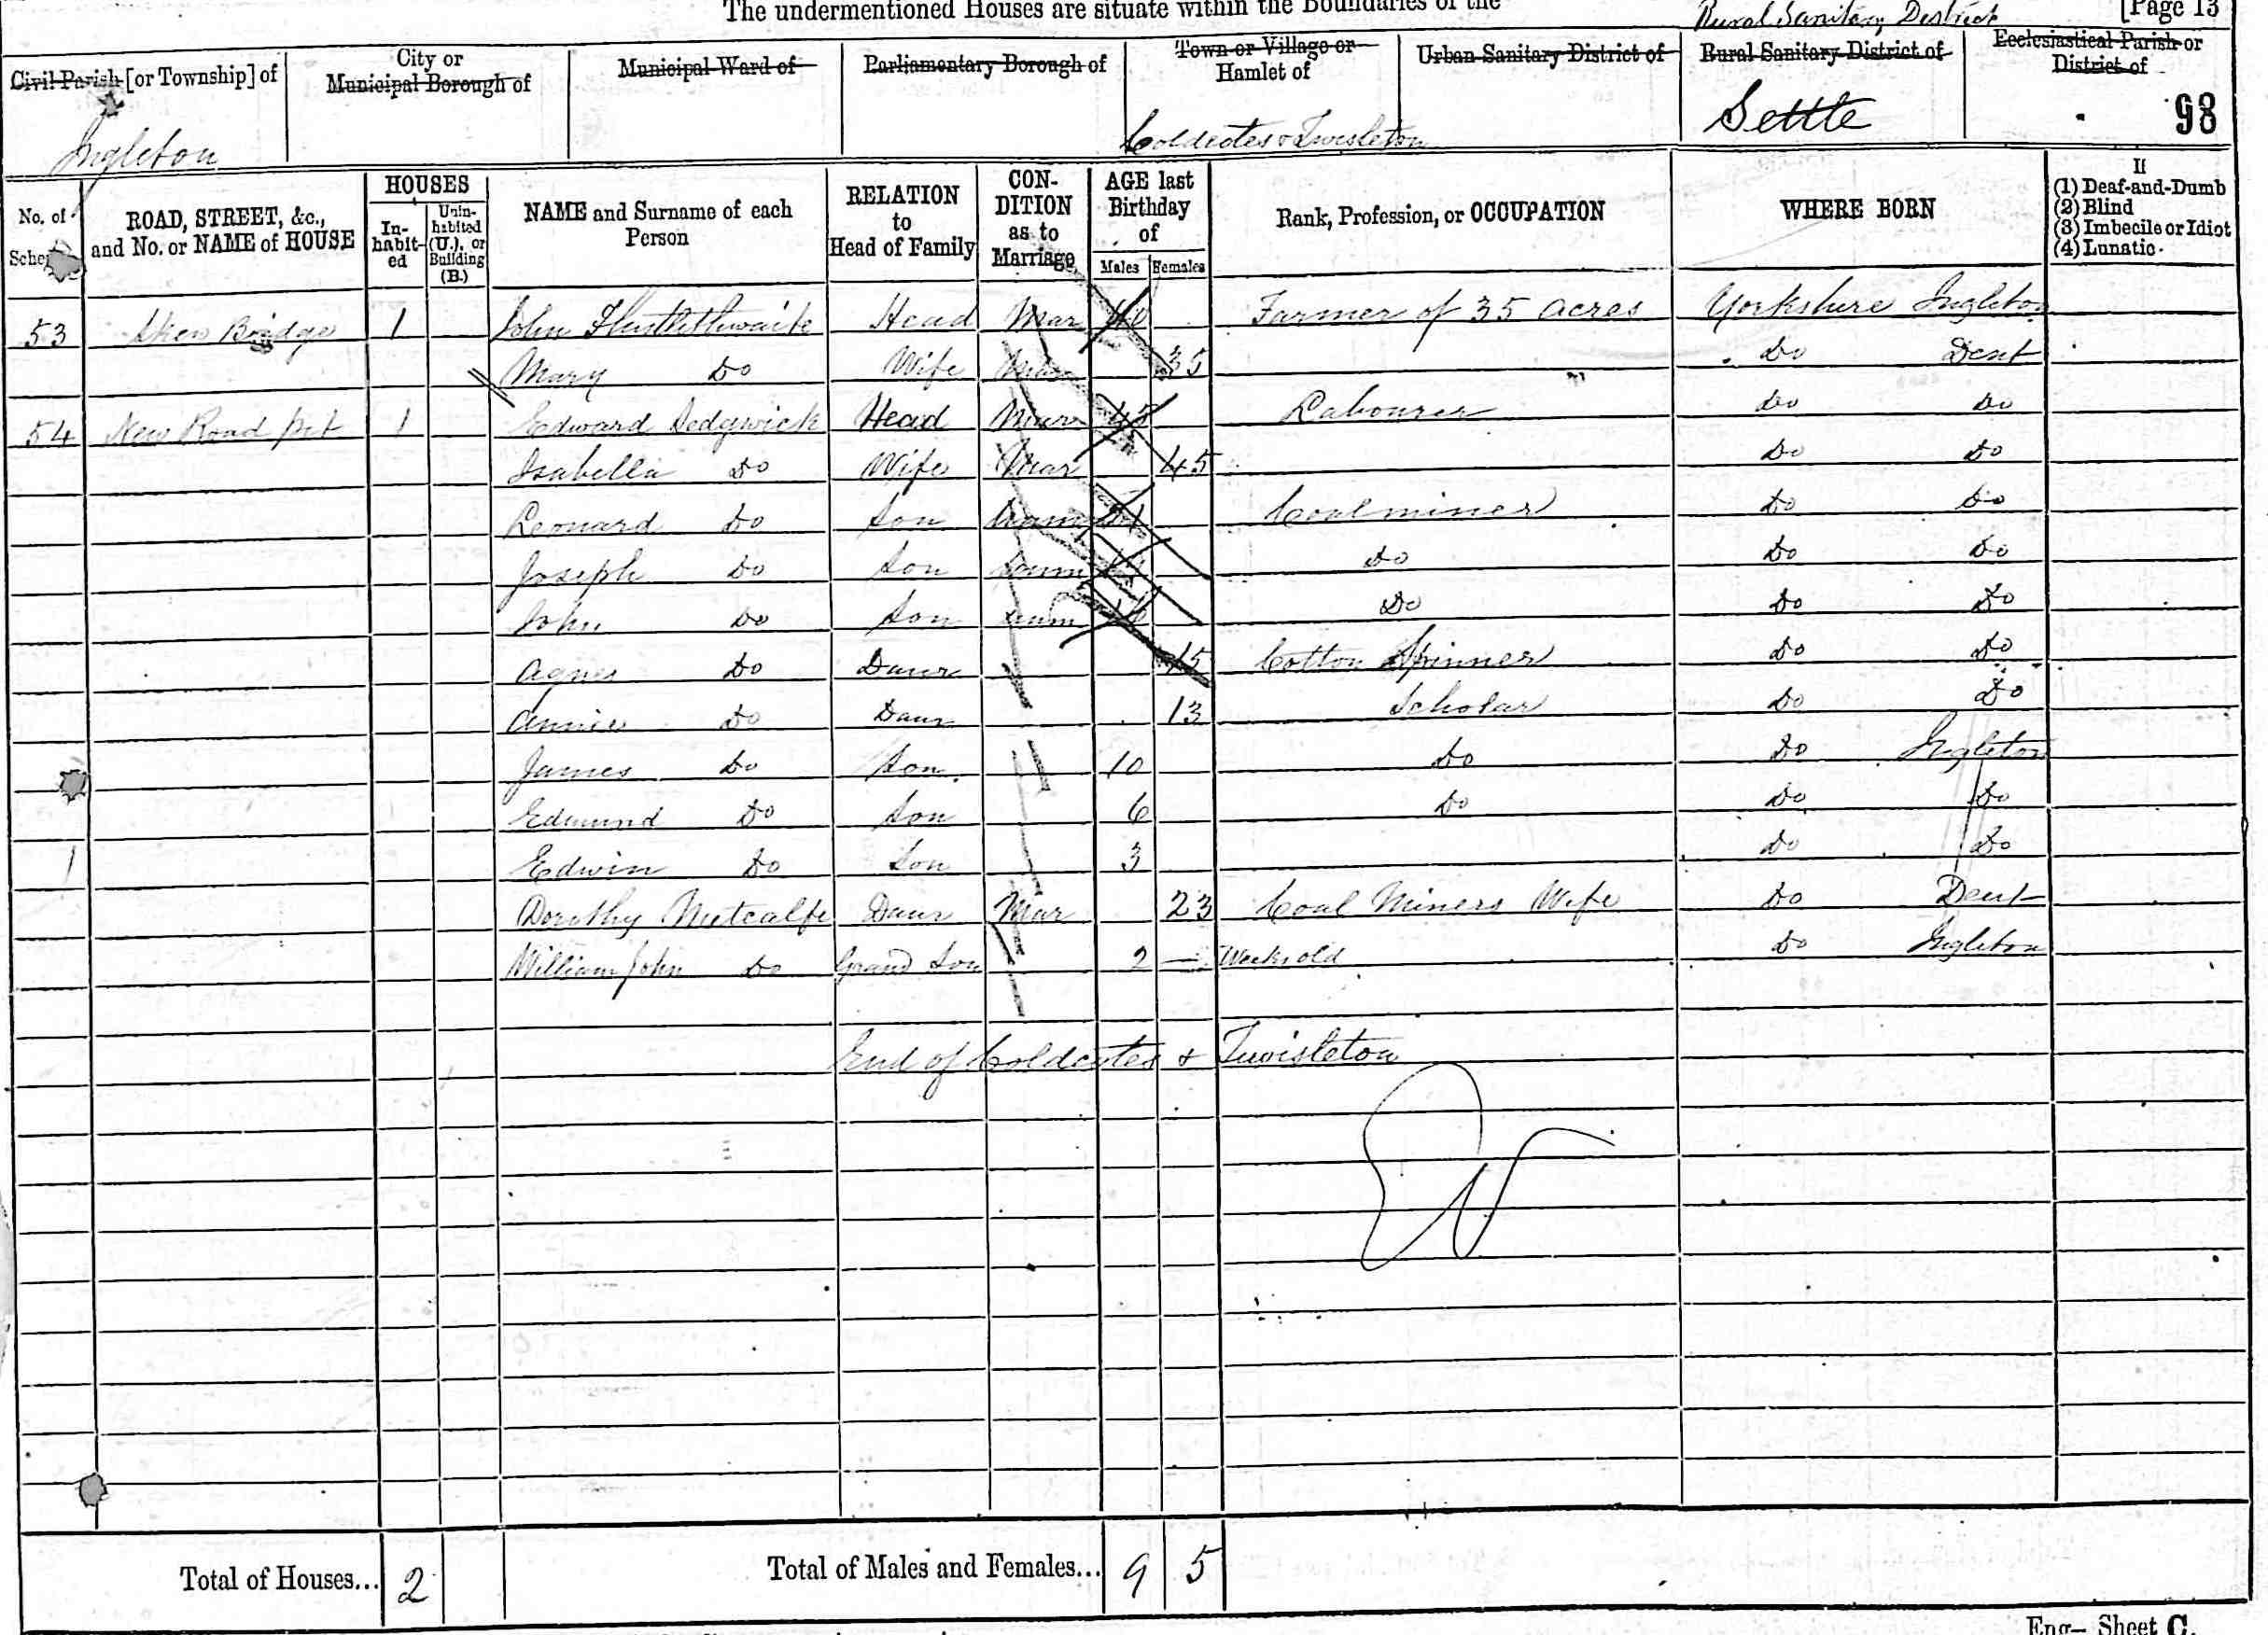 The undermentioned Houses are situate within the Boundaries of the Rural Sanitary District [Page 13
Civil Parish [or Township] of
City or Municipal Borough of
Municipal Ward of
Parliamentary Borough of
Town or Village or Hamlet of
Urban Sanitary District of
Rural Sanitary District of
Ecclesiastical Parish or District of
Ingleton Coldcotes & Twisleton Settle 98
No. of
ROAD, STREET, &c., and No. or NAME of HOUSE
HOUSES
In-habit-ed
Unin-habited (U.), or Building (B.)
NAME and Surname of each Person
RELATION to Head of Family
CON-DITION as to Marriage
AGE last Birthday of
Males Females
Rank, Profession, or OCCUPATION
WHERE BORN
If
(1) Deaf-and-Dumb
(2) Blind
(3) Imbecile or Idiot
(4) Lunatic
53 Bridge 1 John Head Mar Farmer of 35 acres Yorkshire Ingleton
Mary Do Wife Mar 35 Do Dent
54 New Road pit 1 Edward Sedgwick Head Mar 45 Labourer Do Do
Isabella Do Wife Mar 45 Do Do
Leonard Do Son Coalminer Do Do
Joseph Do Son Do Do Do
John Do Son Do Do Do
Agnes Do Daur 15 Cotton Spinner Do Do
Annie Do Daur 13 Scholar Do Do
James Do Son 10 Do Do Ingleton
Edmund Do Son 6 Do Do Do
Edwin Do Son 3 Do Do
Dorothy Metcalfe Daur Mar 23 Coal Miners Wife Do Dent
William John Do Grand Son 2 — Weeks old Do Ingleton
End of Coldcotes & Twisleton
Total of Houses... 2 Total of Males and Females... 9 5
Eng— Sheet C.